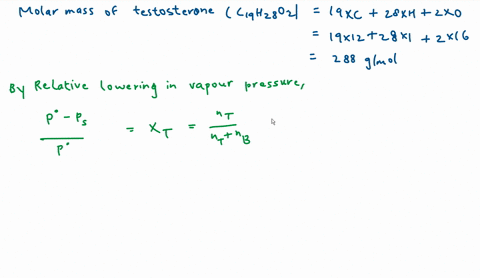 Molar mass of testosterone (C19H28O2) = 19xC + 28xH + 2xO
= 19x12 + 28x1 + 2x16
= 288 g/mol
By Relative lowering in vapour pressure,
p° - ps / p° = xT = nT / nT + nB